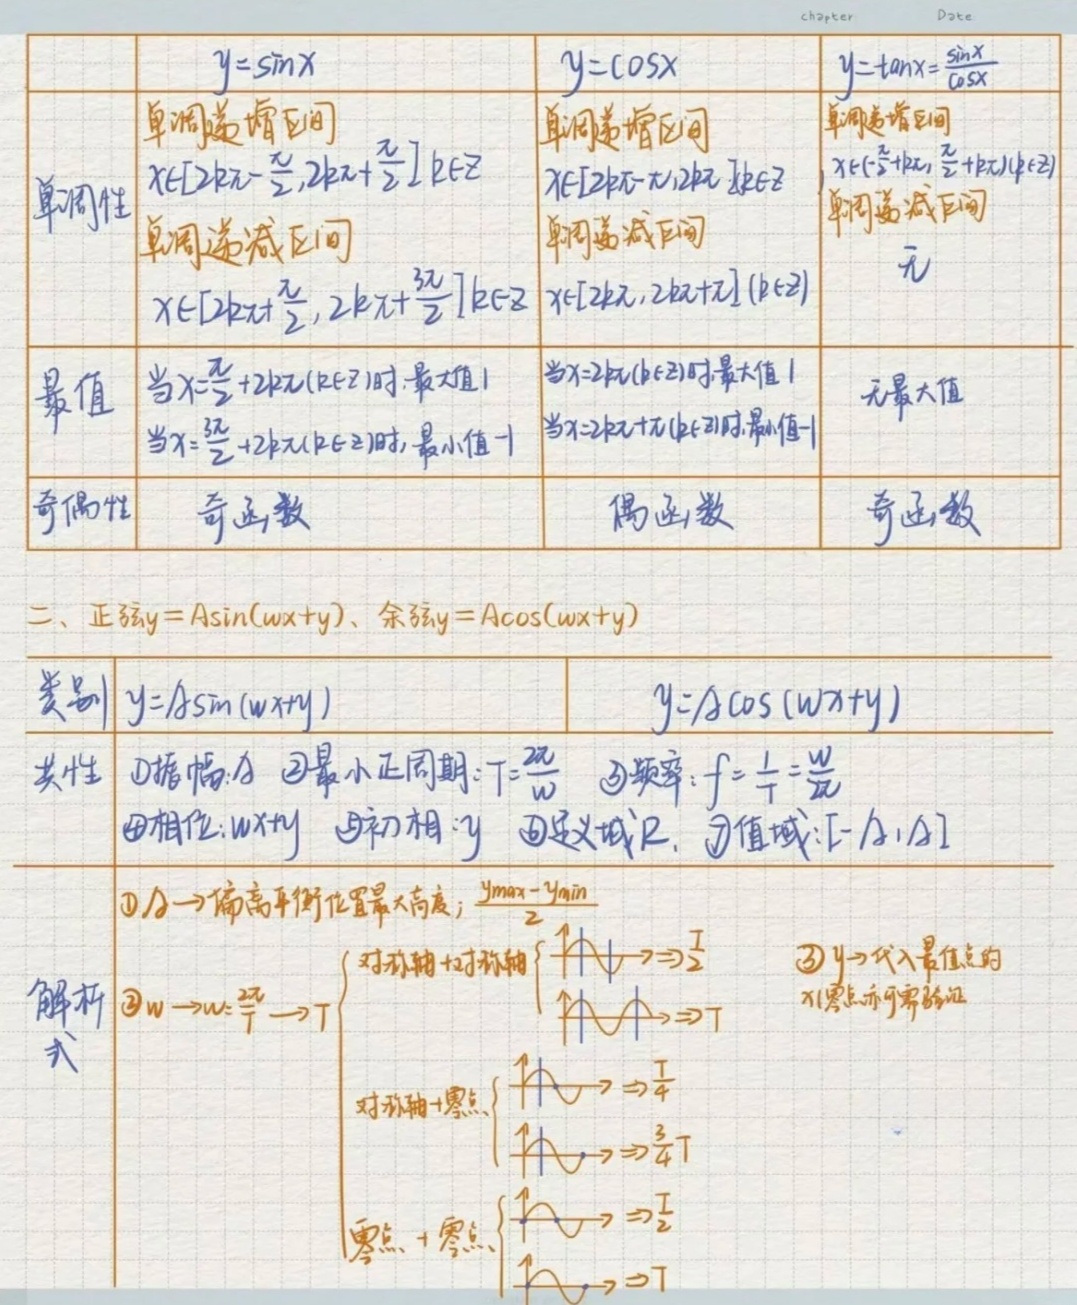 chapter Date
y=sinx y=cosx y=tanx=sinx/cosx
单调性
单调递增区间
x∈[2kπ-π/2,2kπ+π/2]k∈Z
单调递减区间
x∈[2kπ+π/2,2kπ+3π/2]k∈Z
单调递增区间
x∈[2kπ-π,2kπ]k∈Z
单调递减区间
x∈[2kπ,2kπ+π](k∈Z)
单调递增区间
x∈(-π/2+kπ,π/2+kπ)(k∈Z)
单调递减区间
无
最值
当x=π/2+2kπ(k∈Z)时,最大值1
当x=3π/2+2kπ(k∈Z)时,最小值-1
当x=2kπ(k∈Z)时,最大值1
当x=2kπ+π(k∈Z)时,最小值-1
无最大值
奇偶性 奇函数 偶函数 奇函数
二、正弦y=Asin(wx+y)、余弦y=Acos(wx+y)
类别 y=Asin(wx+y) y=Acos(wx+y)
共性 ①振幅:A ②最小正周期:T=2π/w ③频率:f=1/T=w/2π
④相位:wx+y ⑤初相:y ⑥定义域R. ⑦值域:[-A,A]
解析式
①A→偏离平衡位置最大高度; ymax-ymin/2
②w→w=2π/T→T
对称轴+对称轴
⇒T/2
⇒T
对称轴+零点
⇒T/4
⇒3/4T
零点+零点
⇒T/2
⇒T
③y→代入最值点的
x(零点亦可需验证